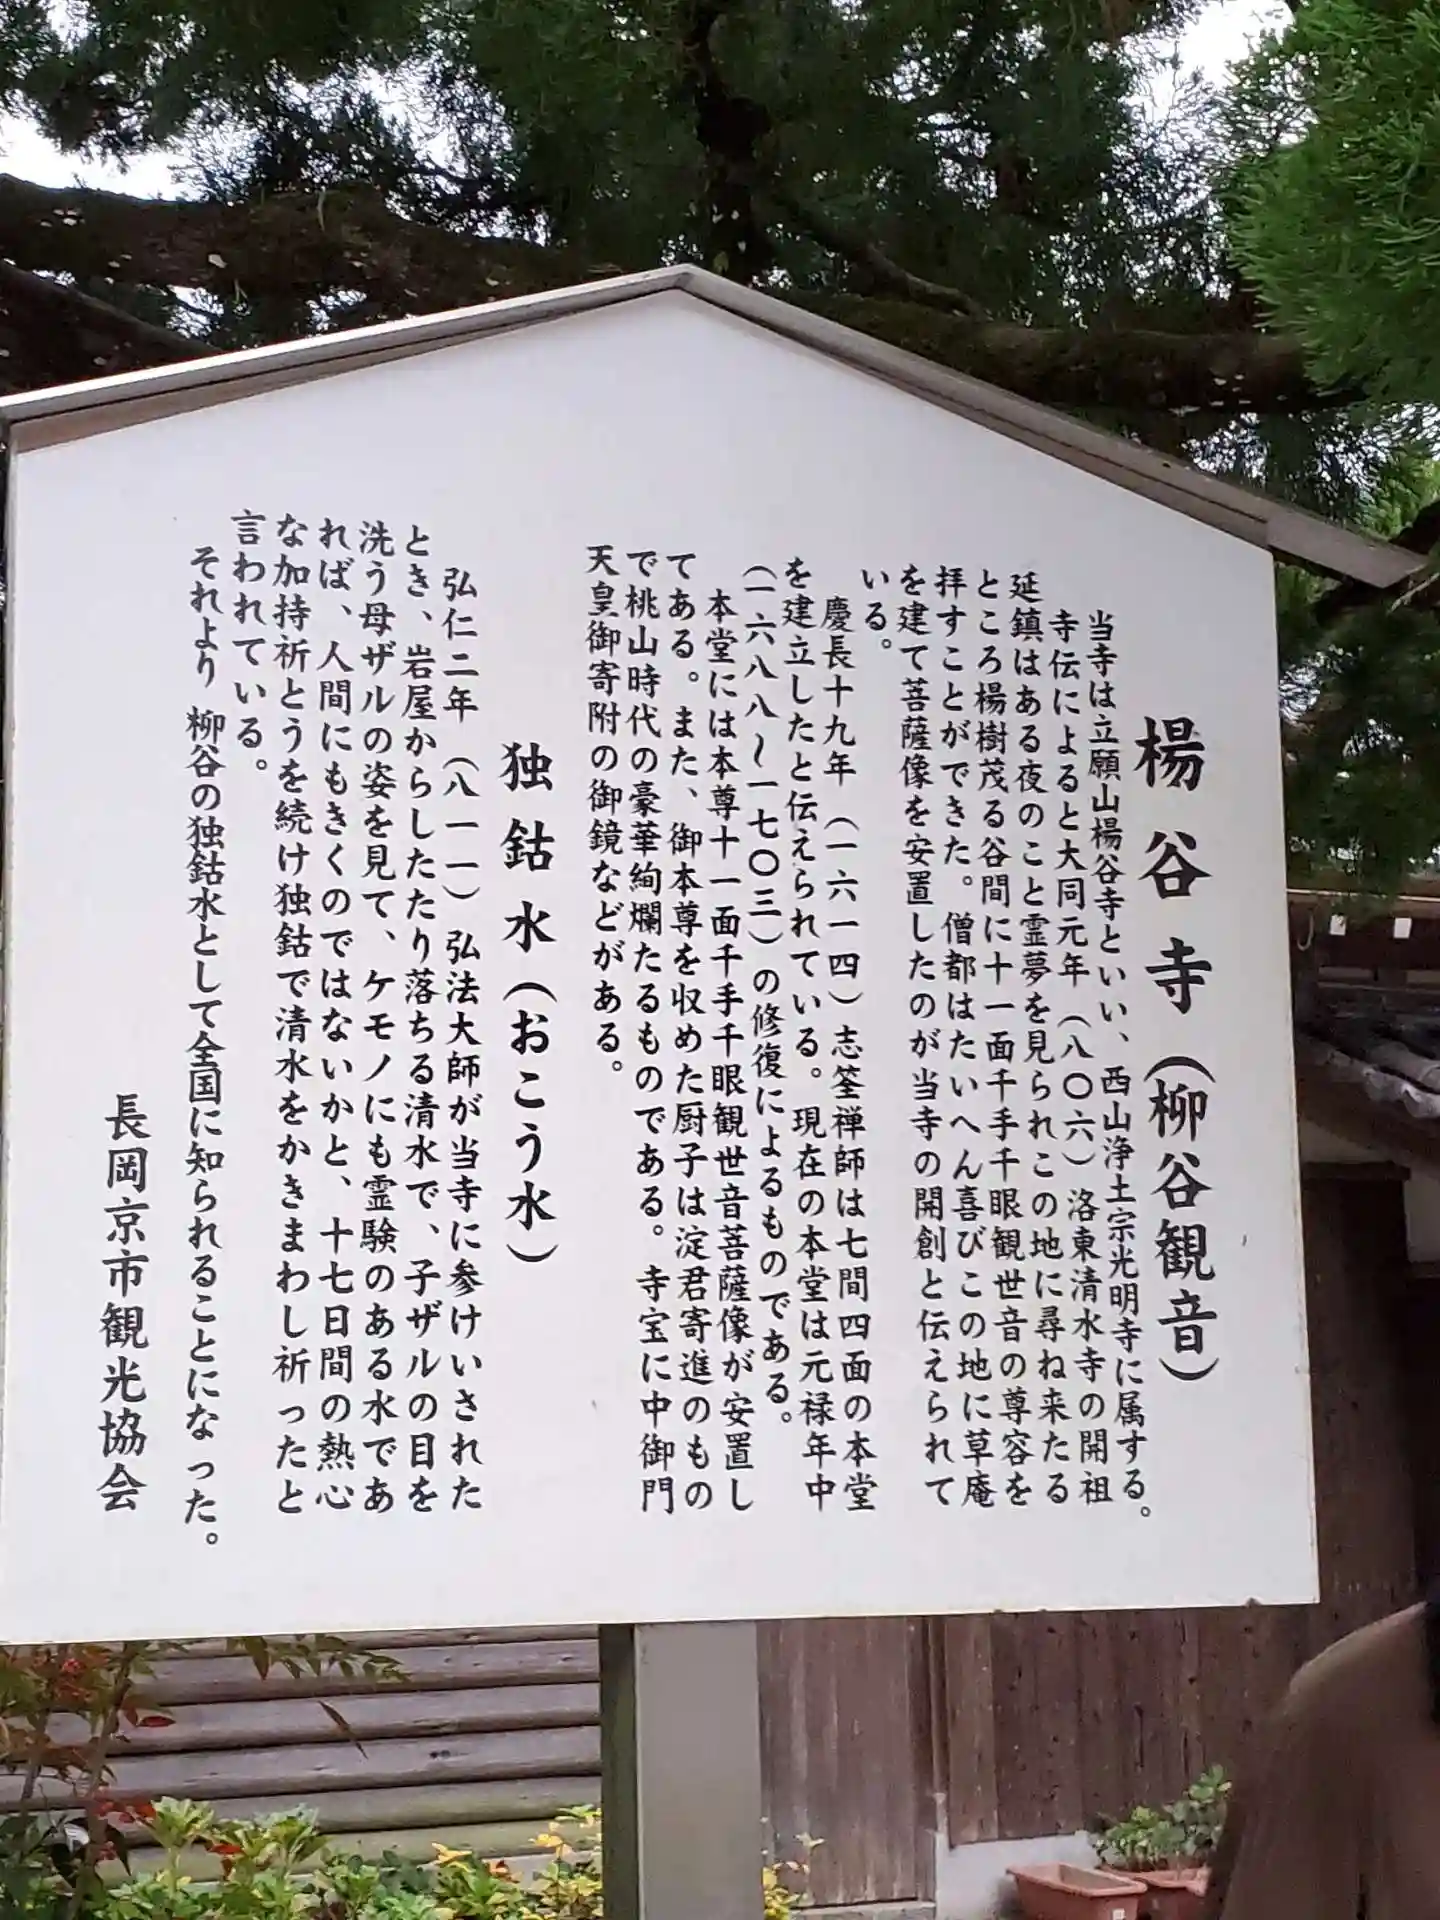 楊谷寺（柳谷観音）
当寺は立願山楊谷寺といい、西山浄土宗光明寺に属する。
寺伝によると大同元年（八〇六）洛東清水寺の開祖
延鎮はある夜のこと霊夢を見られこの地に尋ね来たる
ところ楊樹茂る谷間に十一面千手千眼観世音の尊容を
拝すことができた。僧都はたいへん喜びこの地に草庵
を建て菩薩像を安置したのが当寺の開創と伝えられて
いる。
慶長十九年（一六一四）志筌禅師は七間四面の本堂
を建立したと伝えられている。現在の本堂は元禄年中
（一六八八〜一七〇三）の修復によるものである。
本堂には本尊十一面千手千眼観世音菩薩像が安置し
てある。また、御本尊を収めた厨子は淀君寄進のもの
で桃山時代の豪華絢爛たるものである。寺宝に中御門
天皇御寄附の御鏡などがある。
独鈷水（おこう水）
弘仁二年（八一一）弘法大師が当寺に参けいされた
とき、岩屋からしたたり落ちる清水で、子ザルの目を
洗う母ザルの姿を見て、ケモノにも霊験のある水であ
れば、人間にもきくのではないかと、十七日間の熱心
な加持祈とうを続け独鈷で清水をかきまわし祈ったと
言われている。
それより 柳谷の独鈷水として全国に知られることになった。
長岡京市観光協会